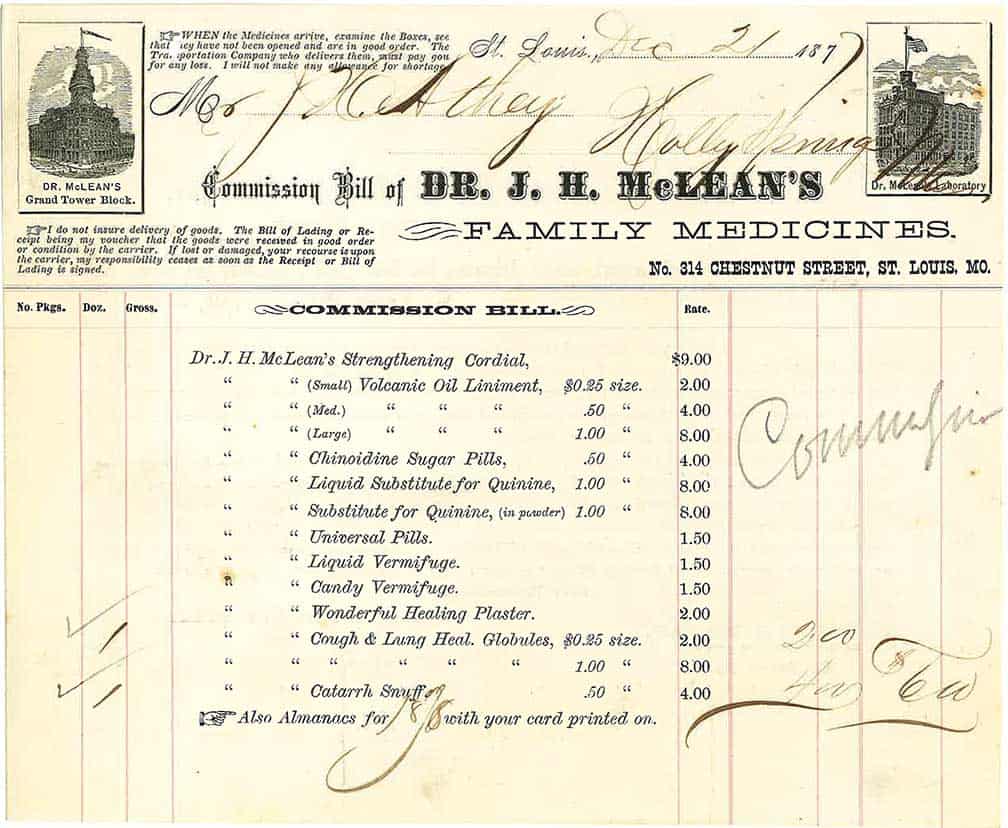 WHEN the Medicines arrive, examine the Boxes, see
that they have not been opened and are in good order. The
Transportation Company who delivers them, must pay you
for any loss. I will not make any allowance for shortage.
St. Louis, Dec 21 1877
Mr J H Athey
Holly Springs
DR. McLEAN'S
Grand Tower Block.
Dr. McLean's Laboratory
Commission Bill of DR. J. H. McLEAN'S
FAMILY MEDICINES.
No. 314 CHESTNUT STREET, ST. LOUIS, MO.
I do not insure delivery of goods. The Bill of Lading or Re-
ceipt being my voucher that the goods were received in good order
or condition by the carrier. If lost or damaged, your recourse is upon
the carrier, my responsibility ceases as soon as the Receipt or Bill of
Lading is signed.
No. Pkgs. Doz. Gross. COMMISSION BILL. Rate.
Dr. J. H. McLean's Strengthening Cordial, $9.00
“ “ (Small) Volcanic Oil Liniment, $0.25 size. 2.00
“ “ (Med.) “ “ “ .50 “ 4.00
“ “ (Large) “ “ “ 1.00 “ 8.00
“ “ Chinoidine Sugar Pills, .50 “ 4.00
“ “ Liquid Substitute for Quinine, 1.00 “ 8.00
“ “ Substitute for Quinine, (in powder) 1.00 “ 8.00
“ “ Universal Pills. 1.50
“ “ Liquid Vermifuge. 1.50
“ “ Candy Vermifuge. 1.50
“ “ Wonderful Healing Plaster. 2.00
1 “ “ Cough & Lung Heal. Globules, $0.25 size. 2.00 200
“ “ “ “ “ “ 1.00 “ 8.00
1 “ “ Catarrh Snuff, .50 “ 4.00 400 $600
Also Almanacs for 1878 with your card printed on.